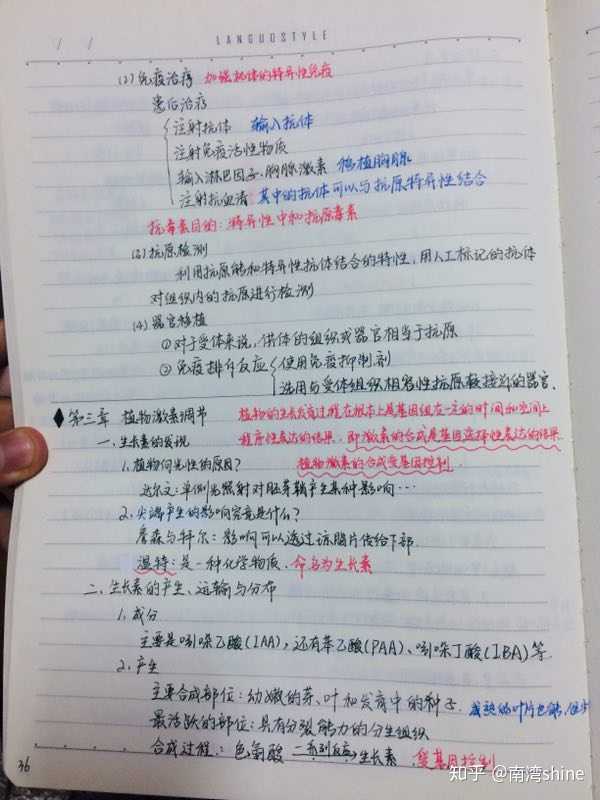 / /
LANGUOSTYLE
(2) 免疫治疗 加强机体的特异性免疫
患后治疗
注射抗体 输入抗体
注射免疫活性物质
输入淋巴因子、胸腺激素 移植胸腺
注射抗血清 其中的抗体可以与抗原特异性结合
抗毒素目的：特异性中和抗原毒素
(3) 抗原检测
利用抗原能和特异性抗体结合的特性，用人工标记的抗体
对组织内的抗原进行检测
(4) 器官移植
①对于受体来说，供体的组织或器官相当于抗原
②免疫排斥反应 使用免疫抑制剂
选用与受体组织相容性抗原较接近的器官.
第三章 植物激素调节 植物的生长发育过程在根本上是基因组在一定的时间和空间上
一、生长素的发现 程序性表达的结果，即激素的合成是基因选择性表达的结果
1. 植物向光性的原因？ 植物激素的合成受基因控制.
达尔文：单侧光照射对胚芽鞘产生某种影响…
2. 尖端产生的影响究竟是什么？
詹森与拜尔：影响可以透过琼脂片传给下部.
温特：是一种化学物质. 命名为生长素
二、生长素的产生、运输与分布
1. 成分
主要是吲哚乙酸(IAA)，还有苯乙酸(PAA)、吲哚丁酸(IBA)等.
2. 产生
主要合成部位：幼嫩的芽、叶和发育中的种子. 成熟的叶片也能，但少
最活跃的部位：具有分裂能力的分生组织
合成过程：色氨酸 一系列反应→ 生长素. 受基因控制
36
知乎 @南湾shine